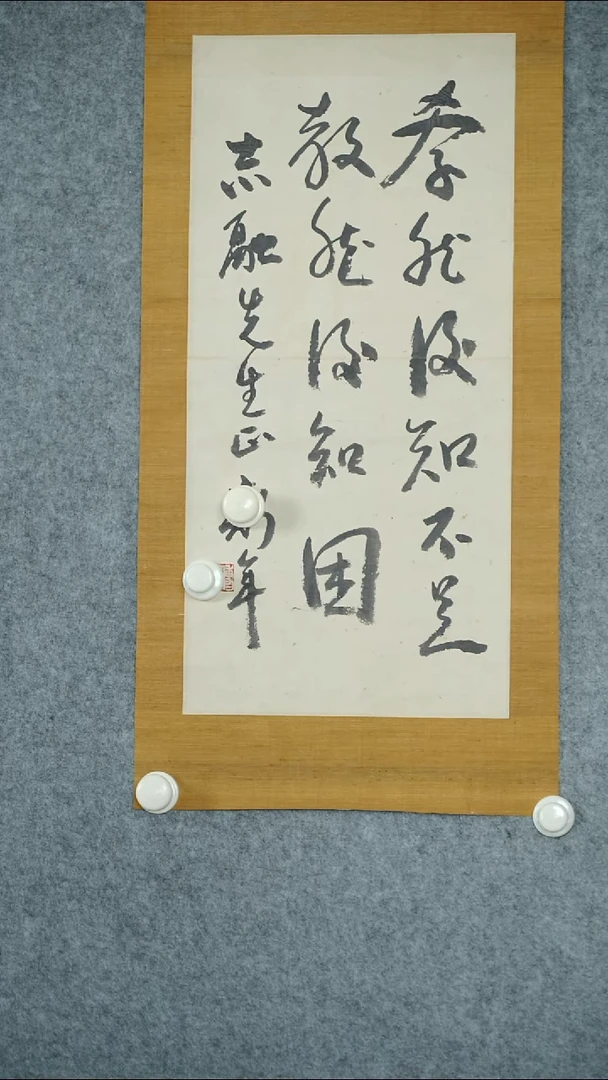 学然后知不足
教然后知困
志融先生正 年